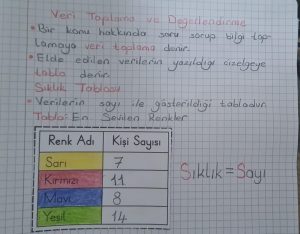 Veri Toplama ve Değerlendirme
• Bir konu hakkında soru sorup bilgi top-
lamaya veri toplama denir.
• Elde edilen verilerin yazıldığı çizelgeye
tablo denir.
Sıklık Tablosu
• Verilerin sayı ile gösterildiği tablodur.
Tablo: En Sevilen Renkler
Renk Adı Kişi Sayısı
Sarı 7
Kırmızı 11
Mavi 8
Yeşil 14
Sıklık = Sayı